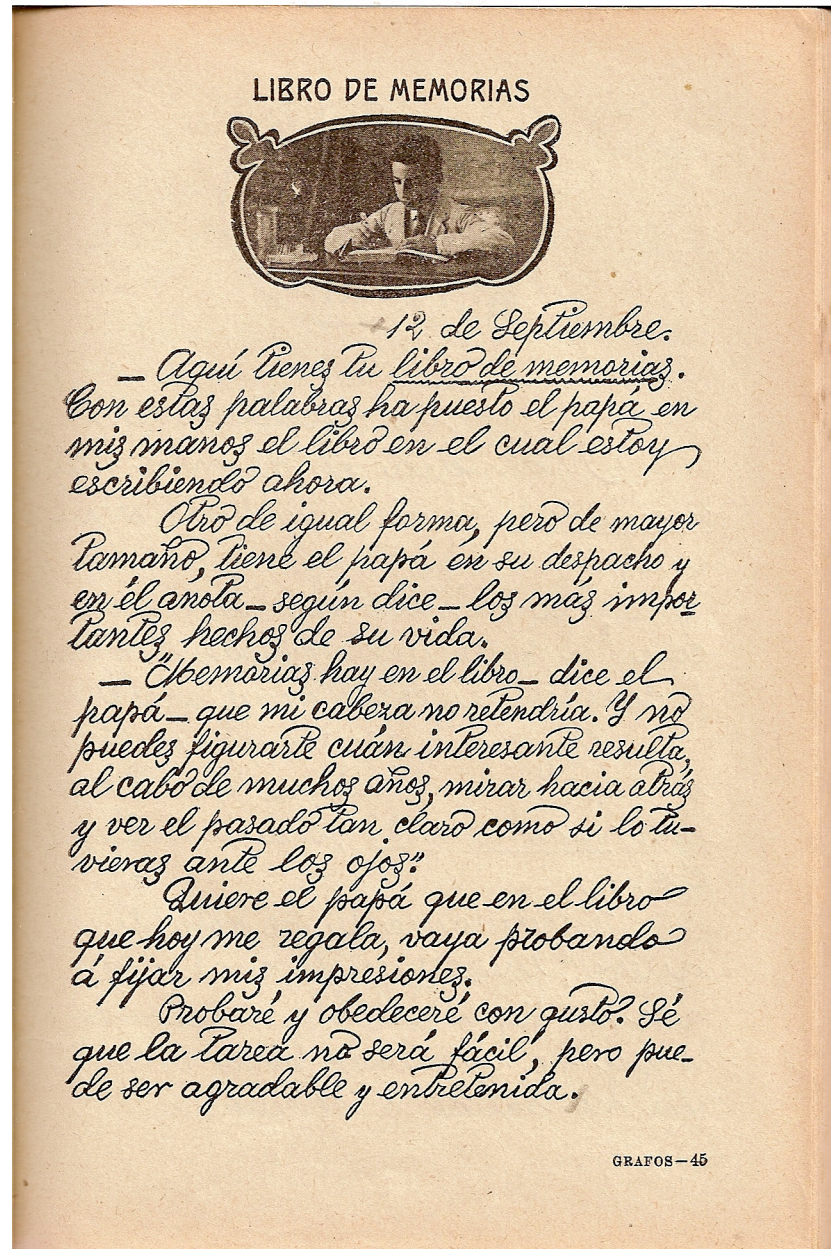 LIBRO DE MEMORIAS
12 de Septiembre.
— Aquí tienes tu libro de memorias.
Con estas palabras ha puesto el papá en
mis manos el libro en el cual estoy
escribiendo ahora.
Otro de igual forma, pero de mayor
tamaño, tiene el papá en su despacho y
en él anota — según dice — los más impor-
tantes hechos de su vida.
— "Memorias hay en el libro — dice el
papá — que mi cabeza no retendría. Y no
puedes figurarte cuán interesante resulta,
al cabo de muchos años, mirar hacia atrás
y ver el pasado tan claro como si lo tu-
vieras ante los ojos."
Quiere el papá que en el libro
que hoy me regala, vaya probando
á fijar mis impresiones.
Probaré y obedeceré con gusto. Sé
que la tarea no será fácil, pero pue-
de ser agradable y entretenida.
GRAFOS—45